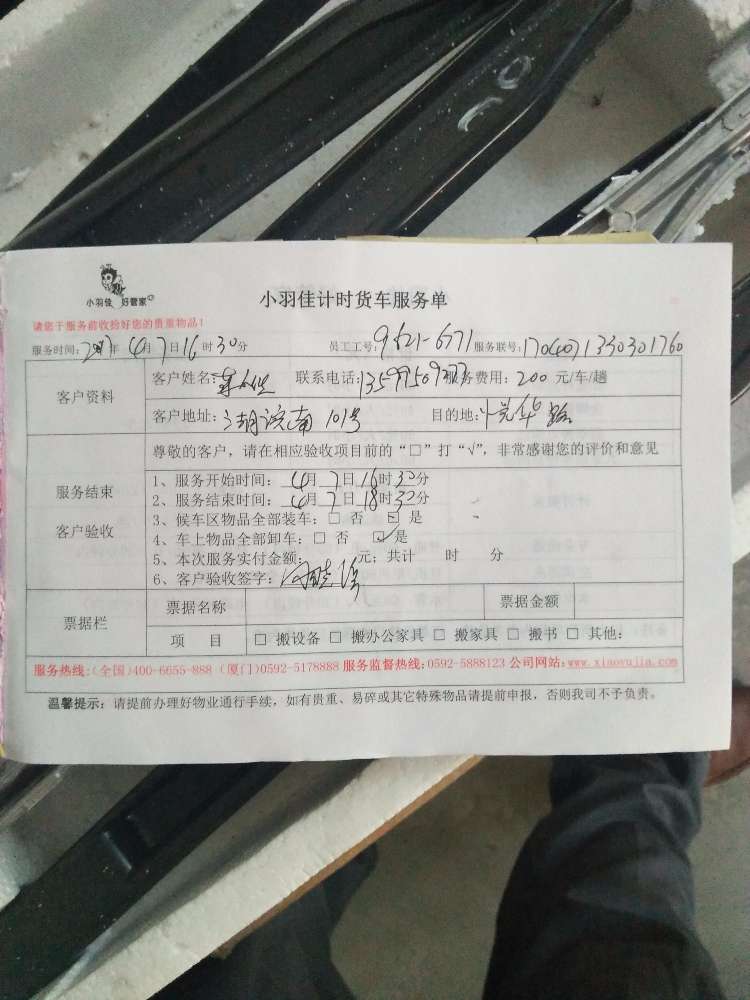 小羽佳 好管家
小羽佳计时货车服务单
请您于服务前收拾好您的贵重物品!
服务时间: 2017年 4月7日16时30分 员工工号: 9621-6771 服务联号: 1704071330301760
客户资料
客户姓名: 联系电话: 服务费用: 200 元/车/趟
客户地址: 湖滨南 101号 目的地: 路
服务结束
客户验收
尊敬的客户，请在相应验收项目前的“□”打“√”，非常感谢您的评价和意见
1、服务开始时间: 4月7日16时32分
2、服务结束时间: 4月7日18时32分
3、候车区物品全部装车: □ 否 ☑ 是
4、车上物品全部卸车: □ 否 ☑ 是
5、本次服务实付金额: 元; 共计 时 分
6、客户验收签字:
票据栏
票据名称 票据金额
项 目 □ 搬设备 □ 搬办公家具 □ 搬家具 □ 搬书 □ 其他:
服务热线:(全国)400-6655-888 (厦门)0592-5178888 服务监督热线:0592-5888123 公司网站:www.xiaoyujia.com
温馨提示: 请提前办理好物业通行手续，如有贵重、易碎或其它特殊物品请提前申报，否则我司不予负责。